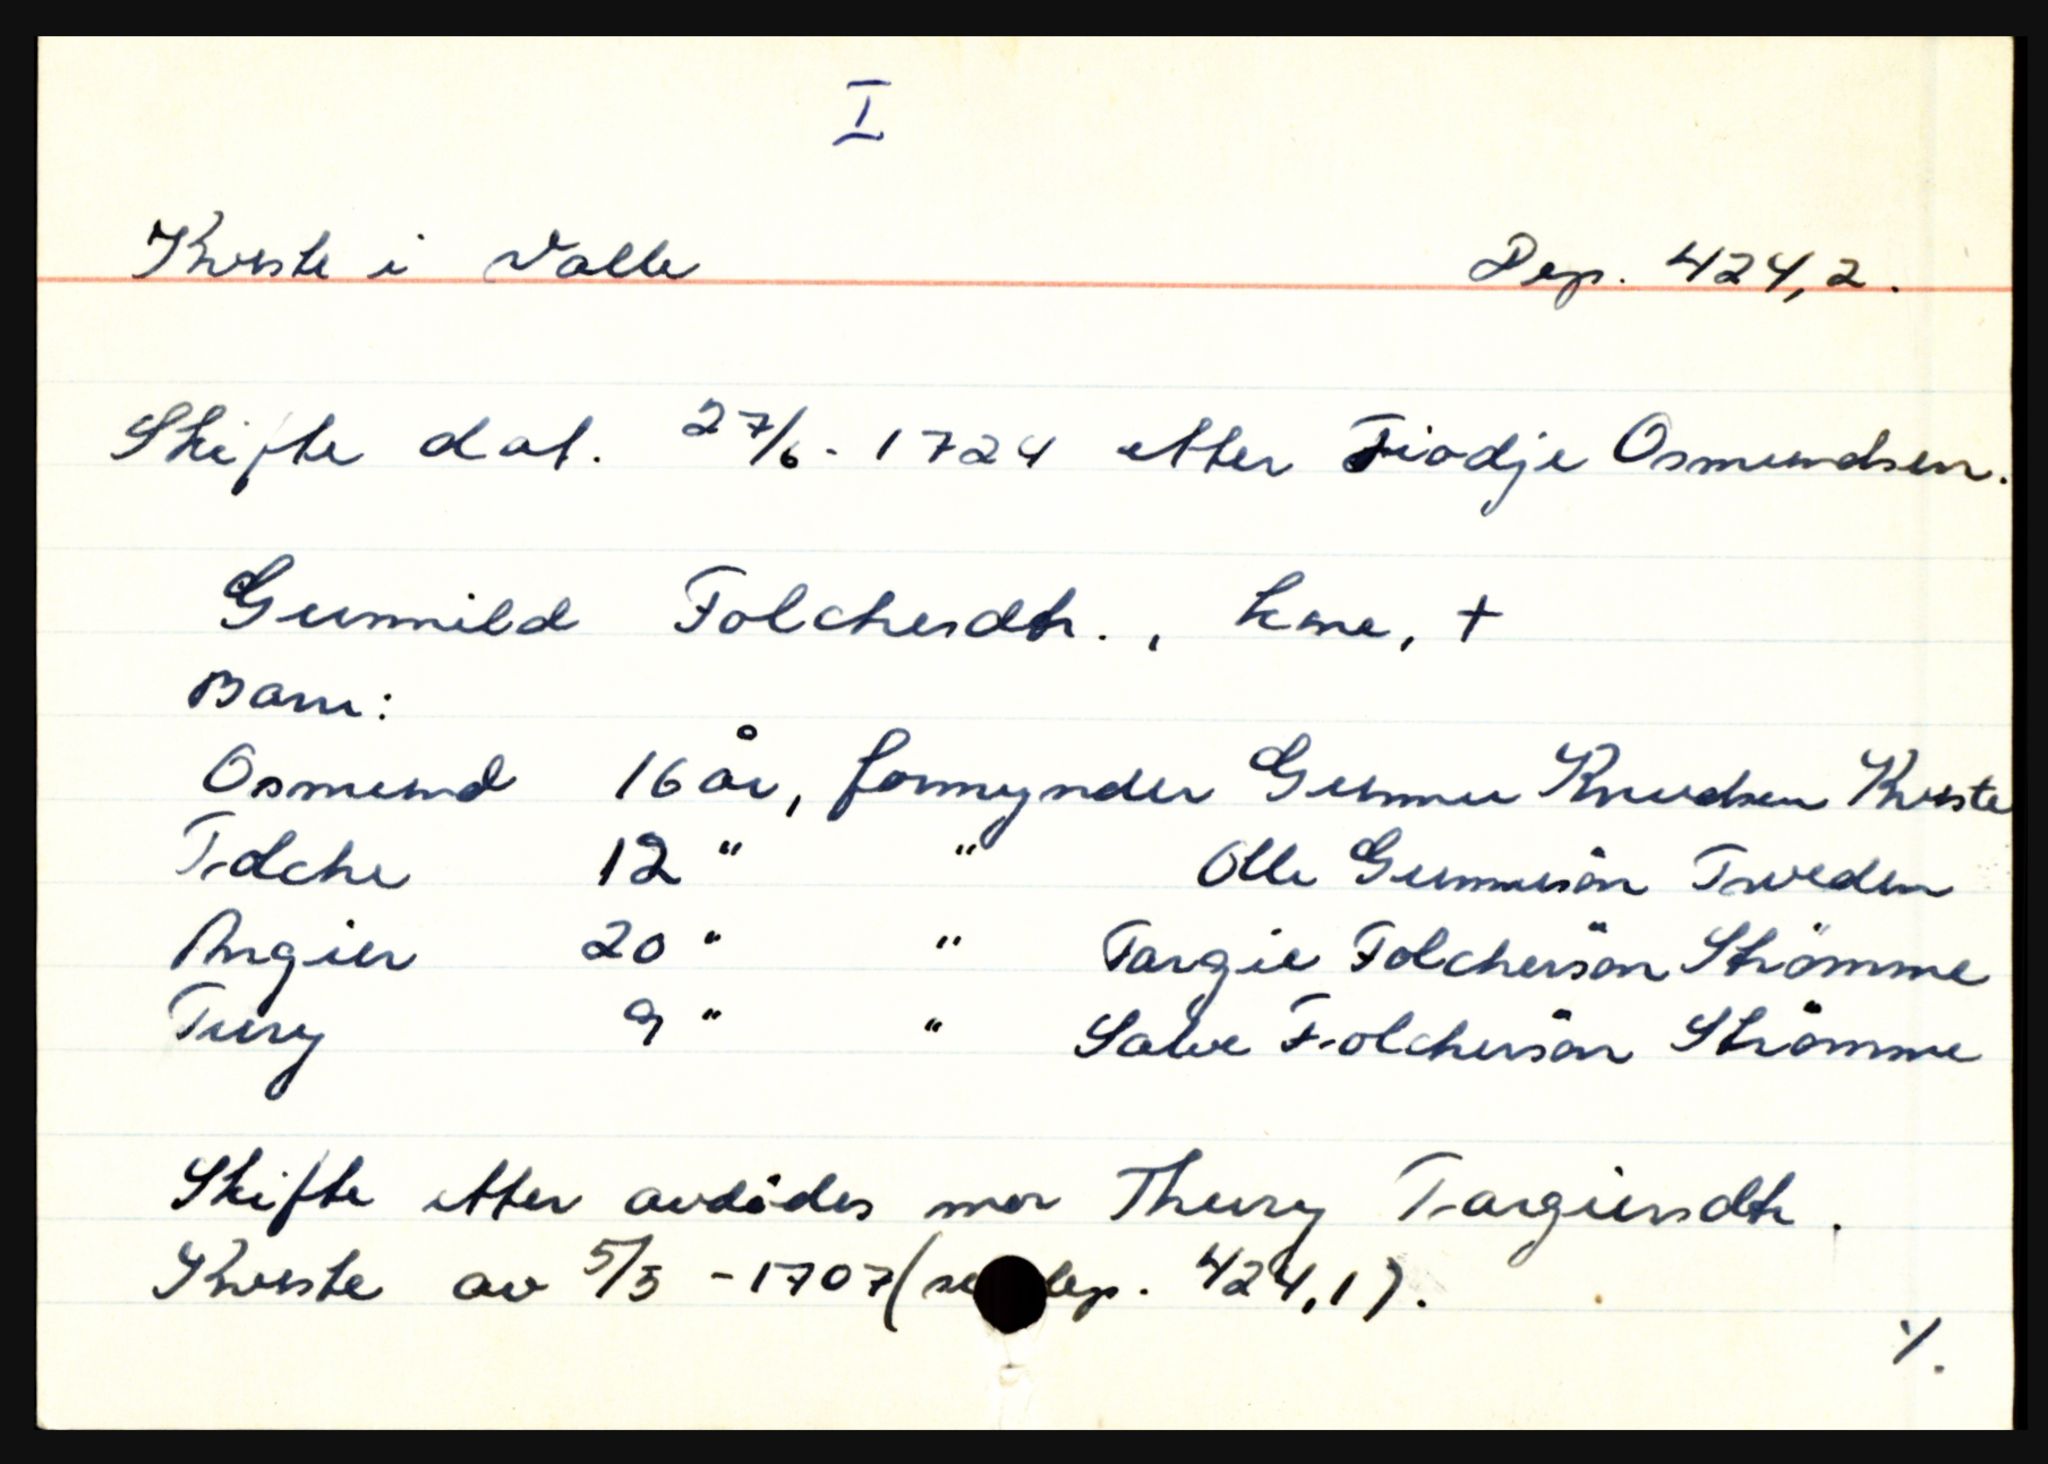 I
Kveste i Valle Dep. 424,2.
Skifte dat. 27/6 - 1724 etter Fiodje Osmundsen.
Gunnild Folchesdtr., kone, +
Barn:
Osmund 16 år, formynder Gunnu Knudsen Kveste
Folche 12 " " Olle Gunnusön Tveden
Angier 20 " " Targie Folchersön Strömme
Tury 9 " " Salve Folchersön Strömme
Skifte etter avdødes mor Thury Targiersdtr.
Kveste av 5/5 - 1707 (se dep. 424,1).